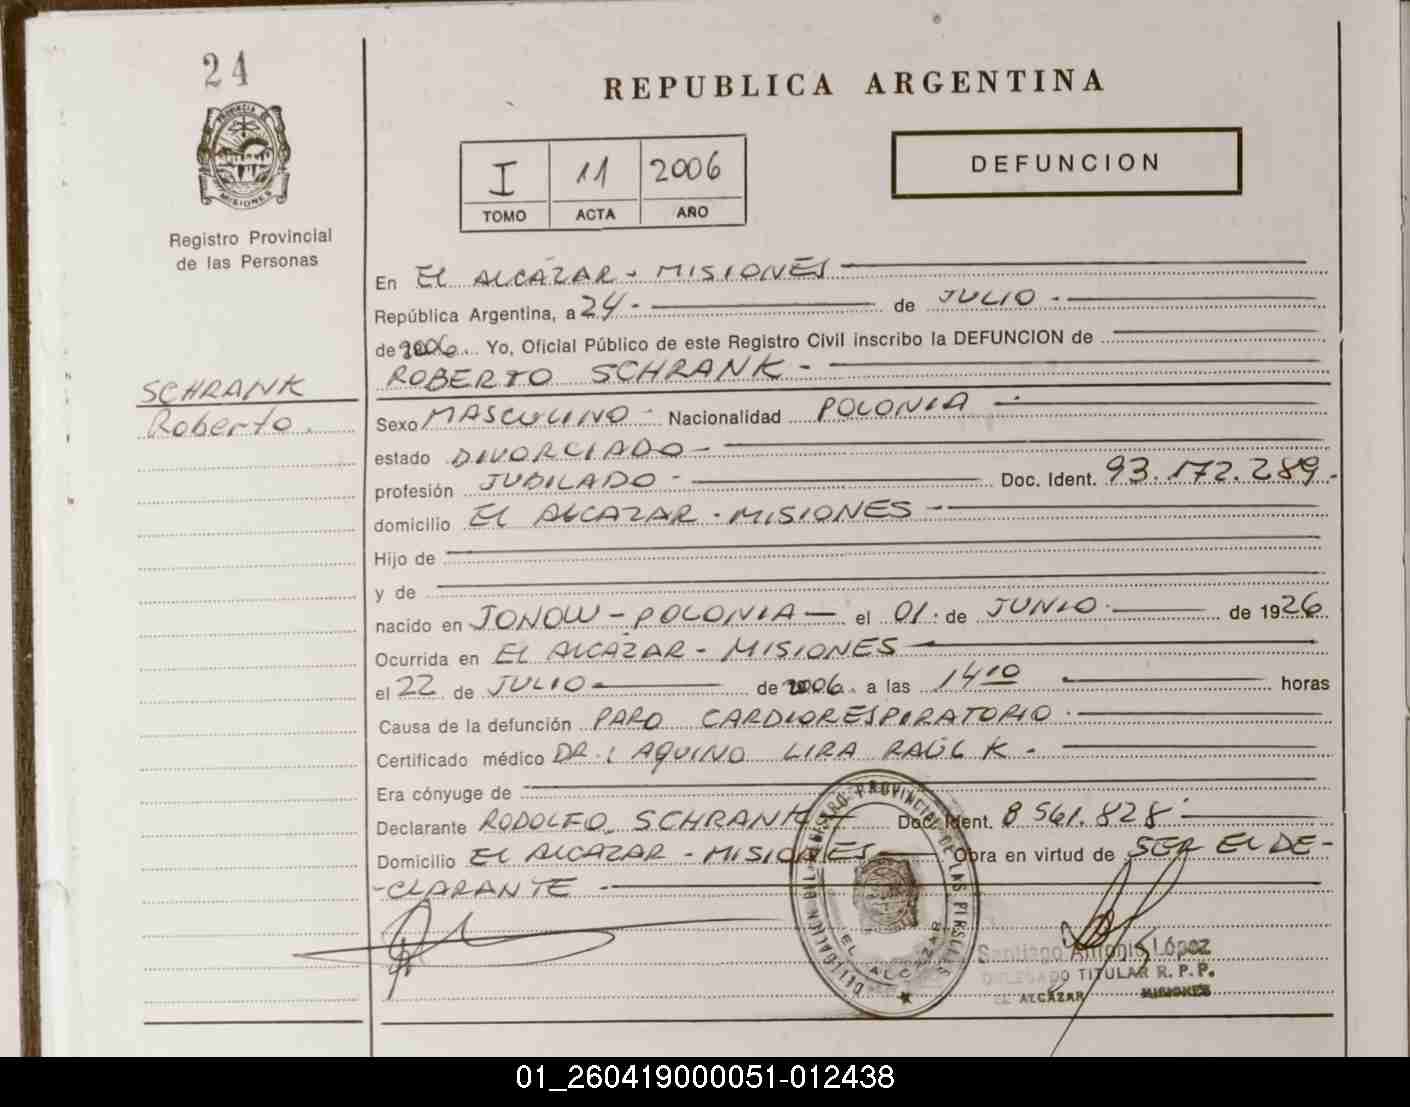 24
REPUBLICA ARGENTINA
PROVINCIA DE MISIONES
Registro Provincial
de las Personas
I 11 2006
TOMO ACTA AÑO
DEFUNCION
SCHRANK
Roberto.
En EL ALCÁZAR - MISIONES
República Argentina, a 24 - de JULIO -
de 2006. Yo, Oficial Público de este Registro Civil inscribo la DEFUNCION de
ROBERTO SCHRANK -
Sexo MASCULINO - Nacionalidad POLONIA -
estado DIVORCIADO -
profesión JUBILADO - Doc. Ident. 93.172.289-
domicilio EL ALCAZAR - MISIONES -
Hijo de
y de
nacido en JONOW - POLONIA - el 01. de JUNIO. de 1926
Ocurrida en EL ALCÁZAR - MISIONES -
el 22 de JULIO - de 2006. a las 14 10 horas
Causa de la defunción PARO CARDIORESPIRATORIO.
Certificado médico DR. AQUINO LIRA RAÚL K -
Era cónyuge de
Declarante RODOLFO SCHRANK - Doc. Ident. 8 561.828
Domicilio EL ALCAZAR - MISIONES - Obra en virtud de SER EL DE-
-CLARANTE -
DELEGACION DEL REGISTRO PROVINCIAL DE LAS PERSONAS
EL ALCAZAR
Santiago Antonio López
DELEGADO TITULAR R. P. P.
EL ALCÁZAR MISIONES
01_260419000051-012438